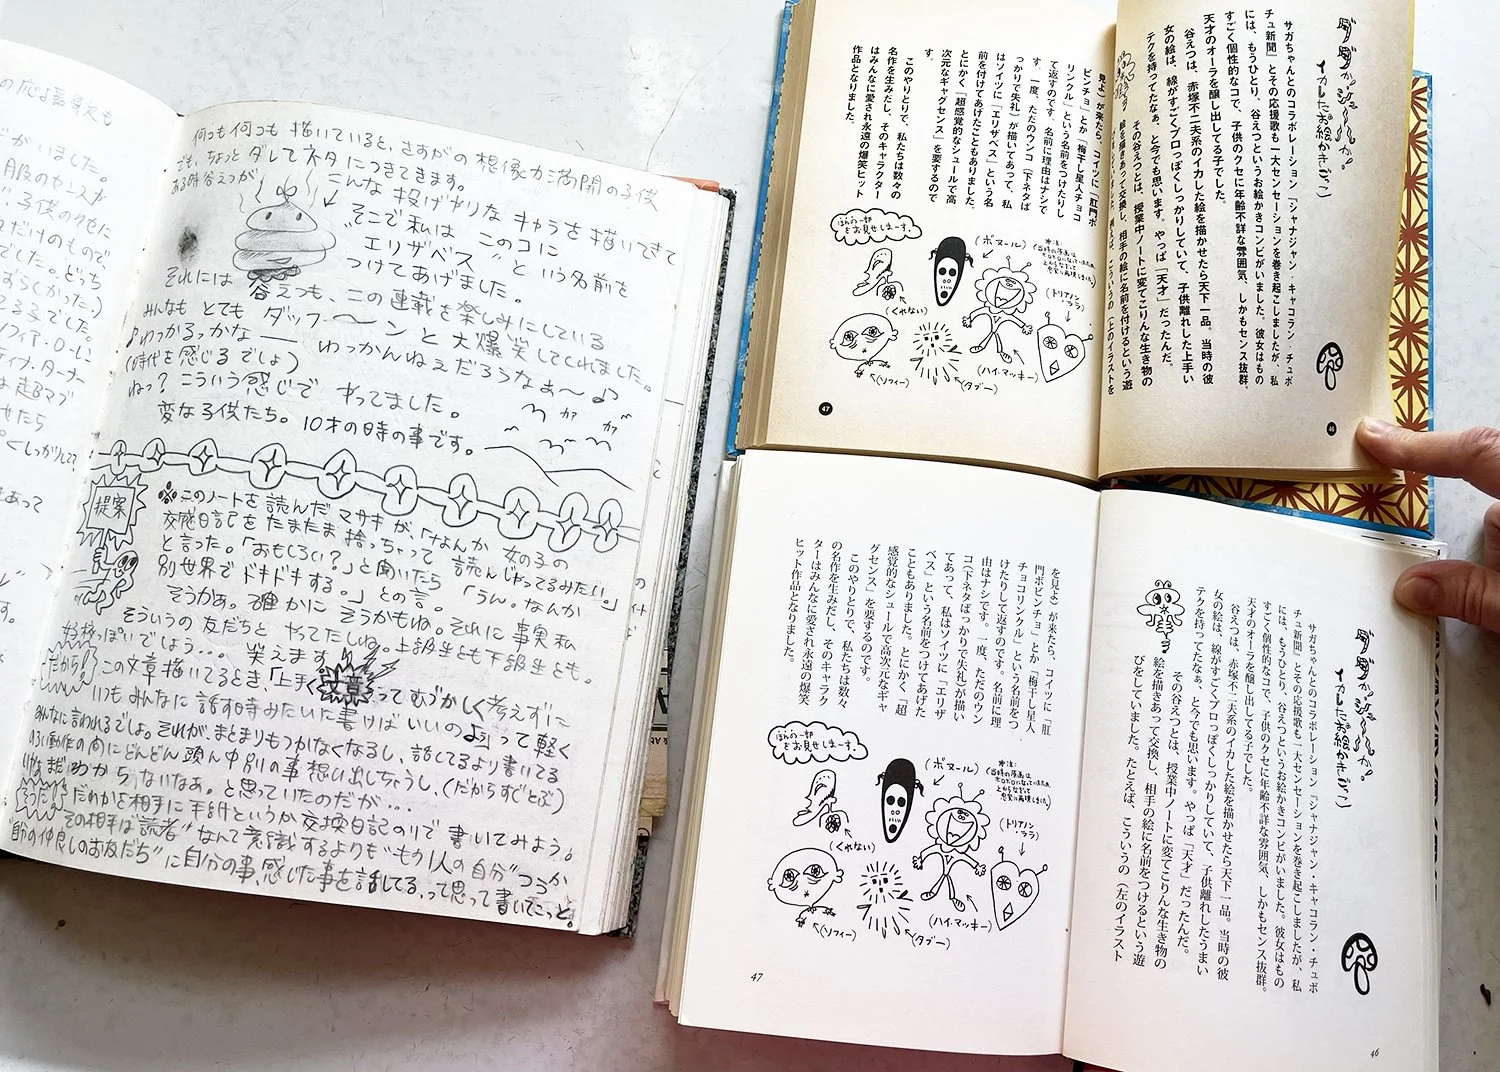 何つも何つも描いていると、さすがの想像力満開の子供
でも、ちょっとダレてネタにつきてきます。
ある時谷えつが、
こんな投げやりなキャラを描いてきて
そこで私はこのコに
"エリザベス"という名前を
つけてあげました。
それには
谷えつも、この連載を楽しみにしている
みんなもとてもダッフ〜〜ンと大爆笑してくれました。
♪わっかるっかな── わっかんねぇだろうなぁ〜♪
(時代を感じるでしょ)
ねっ?こういう感じでやってました。
変な子供たち。10才の時の事です。
提案
※このノートを読んだマサキが、「なんか女の子の
交感日記をたまたま拾っちゃって読んじゃってるみたい」
と言った。「おもしろい?」と聞いたら「うん。なんか
別世界でドキドキする。」との言。
そうかぁ。確かにそうかもね。それに事実私
そういうの友だちとやってたしね。上級生とも下級生とも。
笑えます
だから!
この文章描いてるとき、「上手く文章」ってむづかしく考えずに
いつもみんなに話す時みたいた書けばいいのよ」って軽く
みんなに言われるでしょ。それが、まとまりもつかなくなるし、話してるより書いてる
のろい動作の間にどんどん頭ん中別の事想い出しちゃうし、(だからすぐとぶ)
わからないなぁ。と思っていたのだが…
そうだ!
だれかを相手に手紙というか交換日記のノリで書いてみよう。
その相手は"読者"なんて意識するよりも"もう1人の自分"つうか
"自分の仲良しのお友だち"に自分の事、感じた事を話してる、って思って書いてこっと。
イカしたお絵かきごっこ
サガちゃんとのコラボレーション『シャナジャン・キャコラン・チュポ
チュ新聞』とその応援歌も一大センセーションを巻き起こしましたが、私
には、もうひとり、谷えつというお絵かきコンビがいました。彼女はもの
すごく個性的なコで、子供のクセに年齢不詳な雰囲気、しかもセンス抜群。
天才のオーラを醸し出してる子でした。
谷えつは、赤塚不二夫系のイカした絵を描かせたら天下一品。当時の彼
女の絵は、線がすごくプロっぽくしっかりしていて、子供離れした上手い
テクを持ってたなぁ、と今でも思います。やっぱ「天才」だったんだ。
その谷えつとは、授業中ノートに変てこりんな生き物の
絵を描きあって交換し、相手の絵に名前を付けるという遊
46
見よ)が来たら、コイツに「肛門ボ
ビンチョ」とか「梅干し星人チョコ
リンクル」という名前をつけたりし
て返すのです。名前に理由はナシで
す。一度、ただのウンコ(下ネタば
っかりで失礼)が描いてあって、私
はソイツに「エリザベス」という名
前を付けてあげたこともありました。
とにかく「超感覚的なシュールで高
次元なギャグセンス」を要するので
す。
このやりとりで、私たちは数々の
名作を生みだし、そのキャラクター
はみんなに愛され永遠の爆笑ヒット
作品となりました。
ほんの一部
をお見せしまーす。
(ボヌール)
(くれない)
(トリアノン・ララ)
(ハイ・マッキー)
(ソフィー)
(タブー)
47
イカしたお絵かきごっこ
サガちゃんとのコラボレーション『シャナジャン・キャコラン・チュポ
チュ新聞』とその応援歌も一大センセーションを巻き起こしましたが、私
には、もうひとり、谷えつというお絵かきコンビがいました。彼女はもの
すごく個性的なコで、子供のクセに年齢不詳な雰囲気、しかもセンス抜群。
天才のオーラを醸し出してる子でした。
谷えつは、赤塚不二夫系のイカした絵を描かせたら天下一品。当時の彼
女の絵は、線がすごくプロっぽくしっかりしていて、子供離れしたうまい
テクを持ってたなぁ、と今でも思います。やっぱ「天才」だったんだ。
その谷えつとは、授業中ノートに変てこりんな生き物の
絵を描きあって交換し、相手の絵に名前をつけるという遊
びをしていました。たとえば、こういうの(左のイラスト
46
を見よ)が来たら、コイツに「肛
門ボビンチョ」とか「梅干し星人
チョコリンクル」という名前をつ
けたりして返すのです。名前に理
由はナシです。一度、ただのウン
コ(下ネタばっかりで失礼)が描い
てあって、私はソイツに「エリザ
ベス」という名前をつけてあげた
こともありました。とにかく「超
感覚的なシュールで高次元なギャ
グセンス」を要するのです。
このやりとりで、私たちは数々
の名作を生みだし、そのキャラク
ターはみんなに愛され永遠の爆笑
ヒット作品となりました。
ほんの一部
をお見せしまーす。
(ボヌール)
(くれない)
(トリアノン・ララ)
(ハイ・マッキー)
(ソフィー)
(タブー)
47